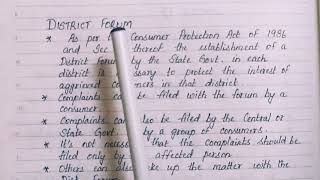 DISTRICT FORUM
* As per Consumer Protection Act of 1986
and Sec thereof the establishment of a
District Forum by the State Govt. in each
district is to protect the interest of
aggrieved in that district
* Complaints can be filed with the forum by a
consumer.
* Complaints can also be filed by the Central or
State Govt. by a group of consumers.
* It's not that the complaints should be
filed only by affected person
* Others can take up the matter with the